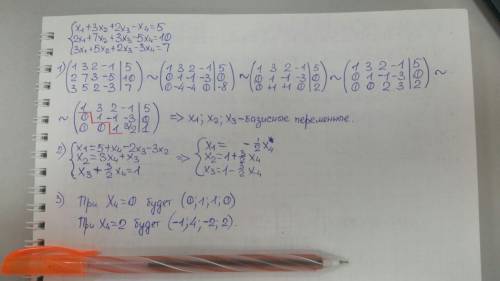 {x₁+3x₂+2x₃-x₄=5
2x₁+7x₂+3x₃-5x₄=10
3x₁+5x₂+2x₃-3x₄=7
1) (1 3 2 -1 | 5; 2 7 3 -5 | 10; 3 5 2 -3 | 7) ~ (1 3 2 -1 | 5; 0 1 -1 -3 | 0; 0 -4 -4 0 | -8) ~ (1 3 2 -1 | 5; 0 1 -1 -3 | 0; 0 +1 +1 0 | 2) ~ (1 3 2 -1 | 5; 0 1 -1 -3 | 0; 0 0 2 3 | 2) ~
~ (1 3 2 -1 | 5; 0 1 -1 -3 | 0; 0 0 1 3/2 | 1) => x₁; x₂; x₃-базисные переменное.
2) {x₁=5+x₄-2x₃-3x₂; x₂=3x₄+x₃; x₃+3/2x₄=1 => {x₁= -1/2x₄; x₂=1+3/2x₄; x₃=1-3/2x₄
3) При x₄=0 будет (0;1;1;0)
При x₄=2 будет (-1;4;-2;2).